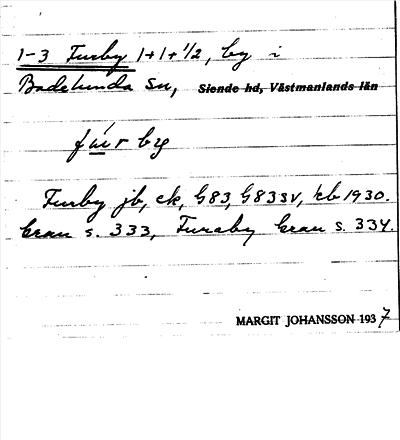 1-3 Furby 1+1+1/2, by i
Badelunda sn, Siende hd, Västmanlands län
fúr by
Furby jb, ek, G83, G83SV, kb 1930.
Grau s. 333, Furaby Grau s. 334.
MARGIT JOHANSSON 1937